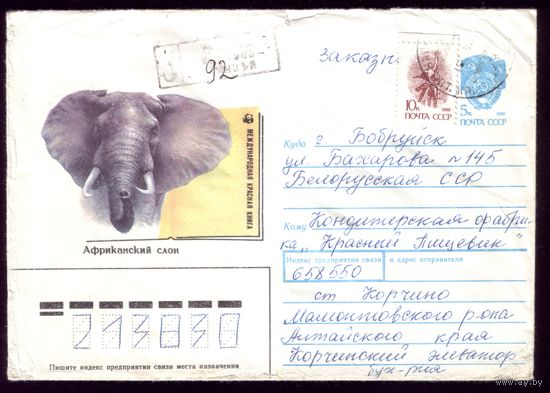 Заказное
92
10к 1988
ПОЧТА СССР
5к 1988
ПОЧТА СССР
МЕЖДУНАРОДНАЯ КРАСНАЯ КНИГА
Африканский слон
Куда г Бобруйск
ул. Бахарова н 145
Белорусская ССР
Кому Кондитерская фабри-
ка „Красный Пищевик"
Индекс предприятия связи и адрес отправителя
658550
ст Корчино
Мамонтовского рона
Алтайского края
Корчинский элеватор
бух-рия
213830
Пишите индекс предприятия связи места назначения
www.ay.by